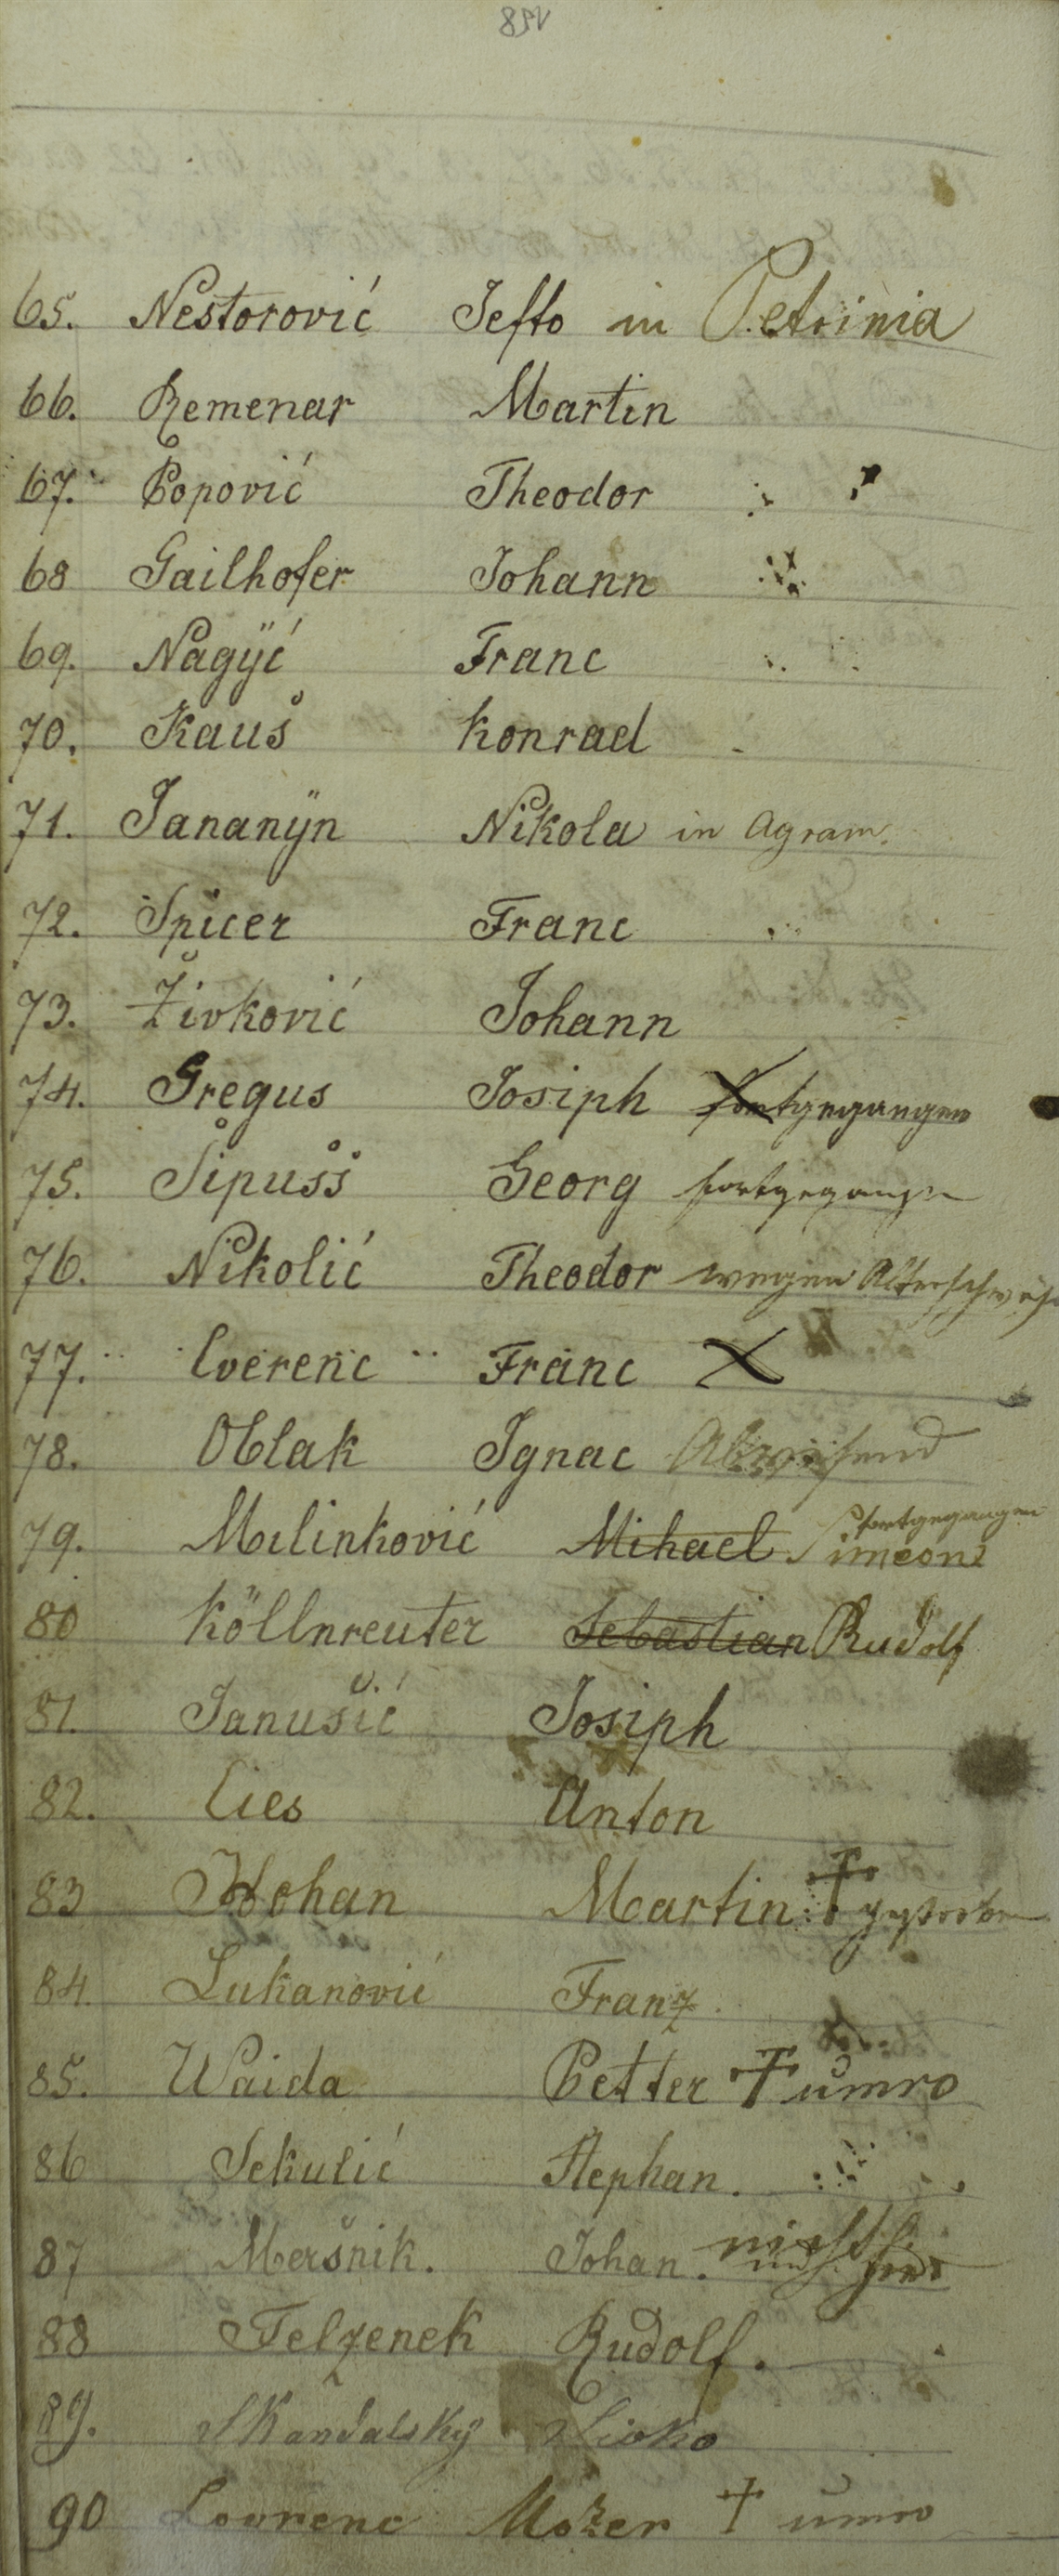 198
65. Nestorović Jefto in Petrinia
66. Remenar Martin
67. Popović Theodor
68 Gailhofer Johann
69. Nagÿć Franc
70. Kauš Konrad
71. Jananÿn Nikola in Agram.
72. Spicer Franc
73. Živković Johann
74. Gregus Josiph fortgegangen
75. Šipušš Georg fortgegangen
76. Nikolić Theodor wegen
77. Cverenc Franc X
78. Oblak Ignac Abweisend
79. Milinković Mihael Simeon fortgegangen
80 Köllnreuter Sebastian Rudolf
81. Janušić Josiph
82. Cies Anton
83 Wohan Martin † gestorben
84. Lukanović Franz.
85. Waida Petter † umro
86 Sekulić Stephan.
87 Meršnik. Johan.
88 Felzenek Rudolf.
89. Skandalskÿ
90 Lovrenc Možer † umro